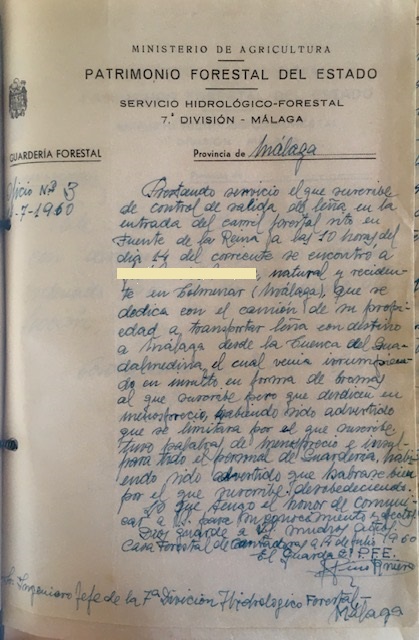 MINISTERIO DE AGRICULTURA
PATRIMONIO FORESTAL DEL ESTADO
SERVICIO HIDROLÓGICO-FORESTAL
7.ª DIVISIÓN - MÁLAGA
GUARDERÍA FORESTAL
Provincia de Málaga
Oficio Nº 3
-7-1960
Prestando servicio el que suscribe
de control de salida de leña en la
entrada del carril forestal sito en
Fuente de la Reina a las 10 horas, del
dia 14 del corriente se encontro a
natural y reciden-
te en Colmenar (Málaga), que se
dedica con el camión de su propi-
edad a transportar leña con destino
a Málaga desde la Cuenca del Gua-
dalmedina, el cual venia
do en insulto en forma de bromas
al que suscribe pero que
menosprecio, habiendo sido advertido
que se limitara por el que suscribe
tuvo palabras de menosprecio e insul
para todo el personal de Guarderia, habi
endo sido advertido que hablase bien
por el que suscribe desobedeciendo.
Lo que tengo el honor de comuni-
car a V. para su conocimiento y efectos
Dios guarde a Vd muchos años
Casa Forestal de 14 de julio 1960
El Guarda del P.F.E.
Sr. Ingeniero Jefe de la 7ª División Hidrologico Forestal -
Málaga